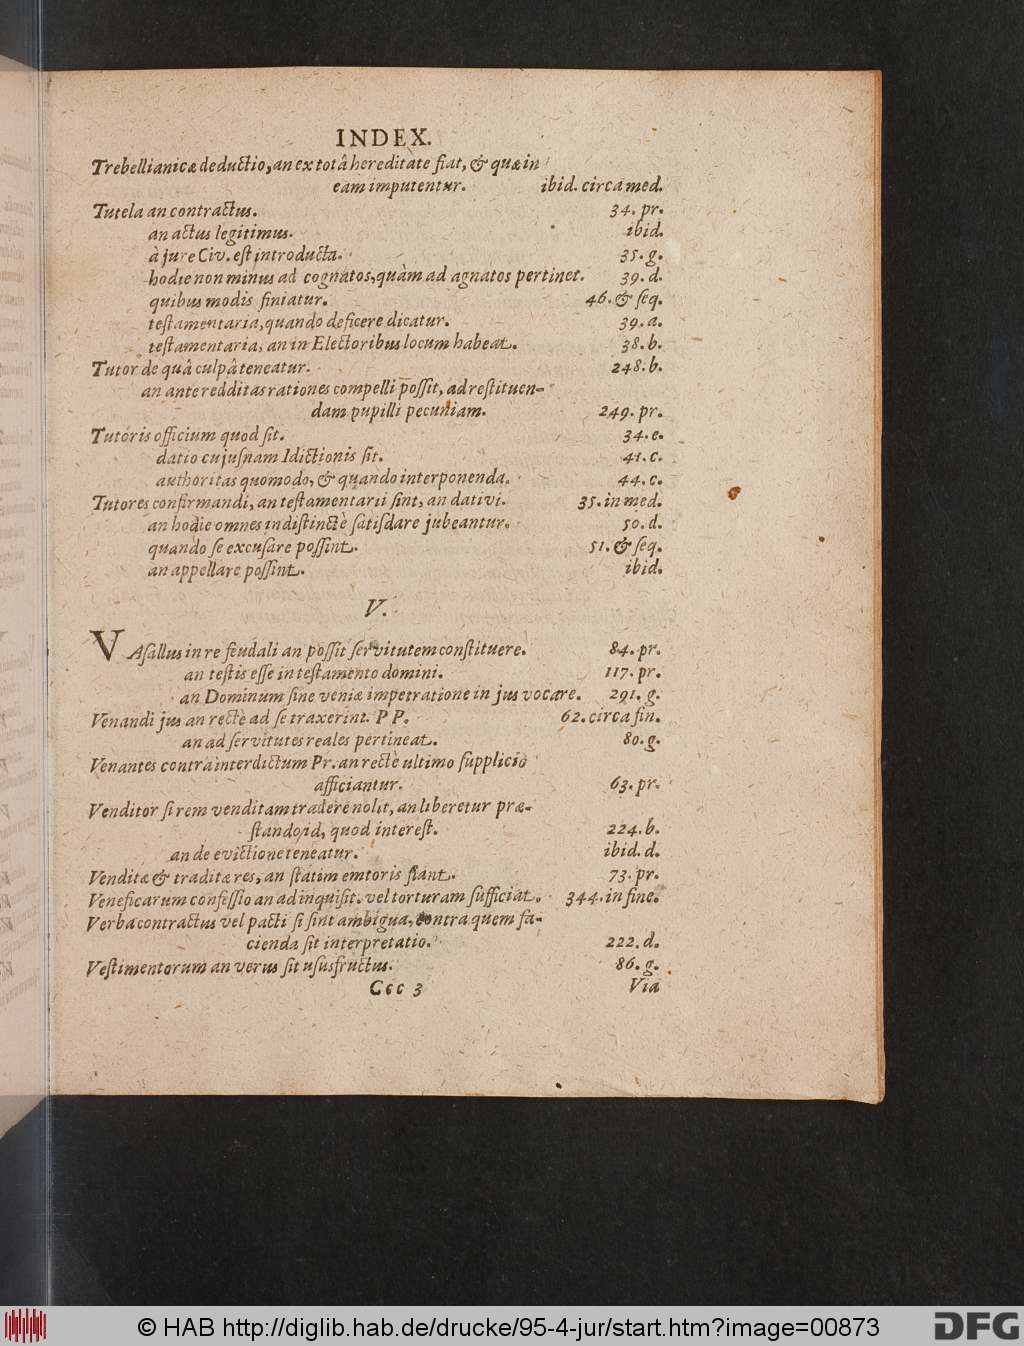 INDEX.
Trebellianicæ deductio, an ex totâ hereditate fiat, & quæ in
eam imputentur. ibid. circa med.
Tutela an contractus. 34. pr.
an actus legitimus. ibid.
à jure Civ. est introducta. 35. g.
hodie non minus ad cognatos, quàm ad agnatos pertinet. 39. d.
quibus modis finiatur. 46. & seq.
testamentaria, quando deficere dicatur. 39. a.
testamentaria, an in Electoribus locum habeat. 38. b.
Tutor de quâ culpâ teneatur. 248. b.
an ante redditas rationes compelli possit, ad restituen-
dam pupilli pecuniam. 249. pr.
Tutoris officium quod sit. 34. e.
datio cujusnam Idictionis sit. 41. c.
authoritas quomodo, & quando interponenda. 44. c.
Tutores confirmandi, an testamentarii sint, an dativi. 35. in med.
an hodie omnes indistinctè satisdare jubeantur. 50. d.
quando se excusare possint. 51. & seq.
an appellare possint. ibid.
V.
VAsallus in re feudali an possit servitutem constituere. 84. pr.
an testis esse in testamento domini. 117. pr.
an Dominum sine veniæ impetratione in jus vocare. 291. g.
Venandi jus an rectè ad se traxerint. P P. 62. circa fin.
an ad servitutes reales pertineat. 80. g.
Venantes contra interdictum Pr. an rectè ultimo supplicio
afficiantur. 63. pr.
Venditor si rem venditam tradere nolit, an liberetur præ-
stando id, quod interest. 224. b.
an de evictione teneatur. ibid. d.
Venditæ & traditæ res, an statim emtoris fiant. 73. pr.
Veneficarum confessio an ad inquisit. vel torturam sufficiat. 344. in fine.
Verba contractus vel pacti si sint ambigua, contra quem fa-
cienda sit interpretatio. 222. d.
Vestimentorum an verus sit ususfructus. 86. g.
Ccc 3 Via
© HAB http://diglib.hab.de/drucke/95-4-jur/start.htm?image=00873
DFG